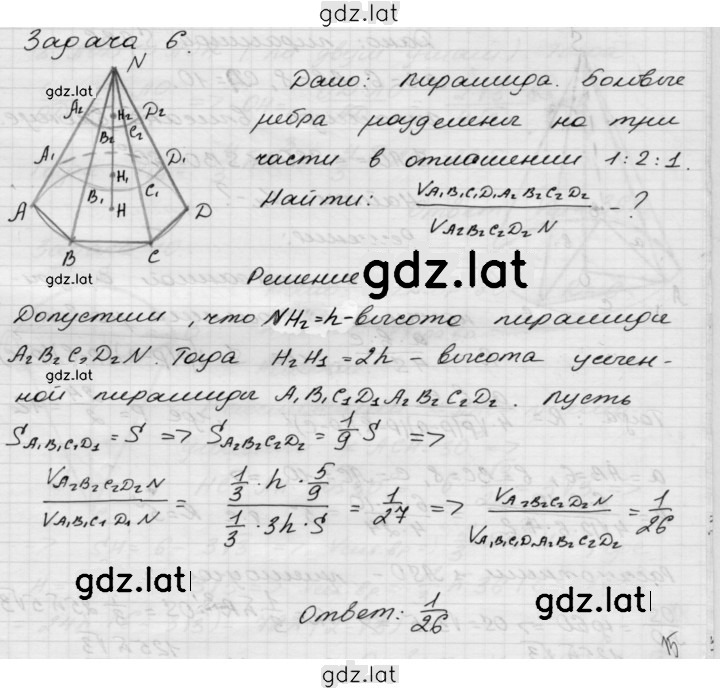 gdz.lat
Задача 6.
N
gdz.lat
A₂ H₂ D₂
B₂ C₂
A₁ H₁ D₁
B₁ C₁
A H D
B C
Дано: пирамида. Боковые
ребра разделены на три
части в отношении 1:2:1.
Найти: V_A₁B₁C₁D₁A₂B₂C₂D₂ / V_A₂B₂C₂D₂N - ?
Решение
gdz.lat
Допустим, что NH₂ = h - высота пирамиды
A₂B₂C₂D₂N. Тогда H₂H₁ = 2h - высота усечен-
gdz.lat
ной пирамиды A₁B₁C₁D₁A₂B₂C₂D₂. Пусть
S_A₁B₁C₁D₁ = S => S_A₂B₂C₂D₂ = 1/9 S =>
V_A₂B₂C₂D₂N / V_A₁B₁C₁D₁N = (1/3 · h · S/9) / (1/3 · 3h · S) = 1/27 => V_A₂B₂C₂D₂N / V_A₁B₁C₁D₁A₂B₂C₂D₂ = 1/26
gdz.lat
gdz.lat
Ответ: 1/26
15
gdz.lat